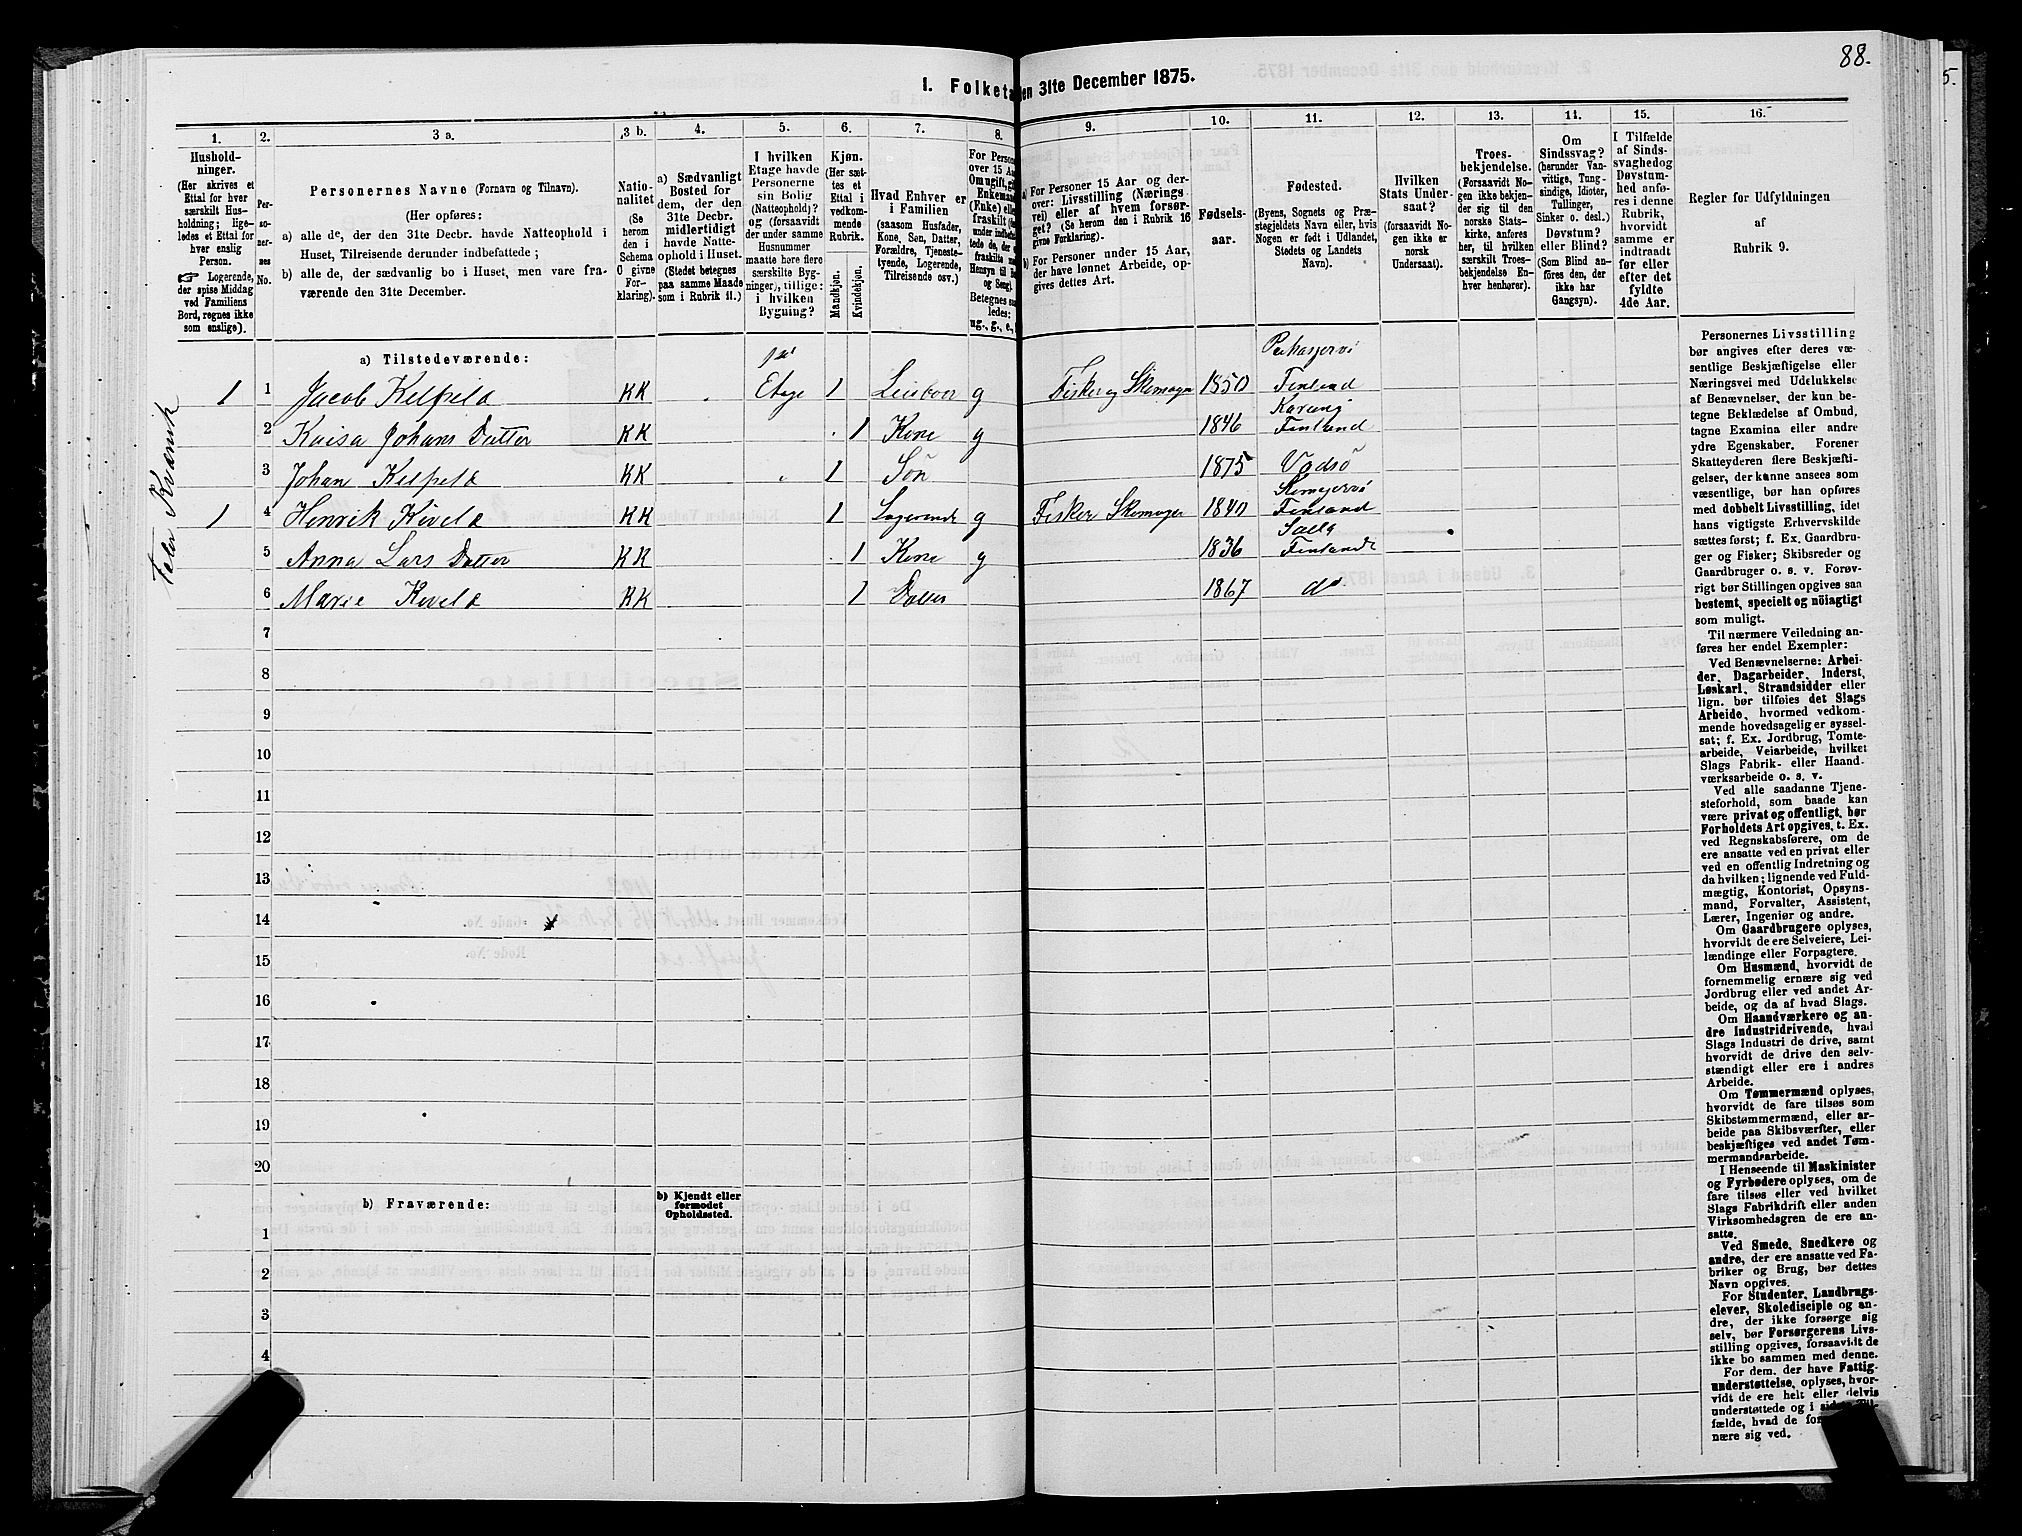 88.
1. Folketa en 31te December 1875.
1. 2. 3 a. 3 b. 4. 5. 6. 7. 8. 9. 10. 11. 12. 13. 14. 15. 16.
Hushold-
ninger.
(Her skrives et
Ettal for hver
særskilt Hus-
holdning; lige-
ledes et Ettal for
hver enslig
Person.
☞ Logerende,
der spise Middag
ved Familiens
Bord, regnes ikke
som enslige).
Per-
so-
ner-
nes
No.
Personernes Navne (Fornavn og Tilnavn).
(Her opføres:
a) alle de, der den 31te Decbr. havde Natteophold i
Huset, Tilreisende derunder indbefattede;
b) alle de, der sædvanlig bo i Huset, men vare fra-
værende den 31te December.
Natio-
nalitet
(Se
herom
den i
Schema
C givne
For-
klaring).
a) Sædvanligt
Bosted for
dem, der den
31te Decbr.
midlertidigt
havde Natte-
ophold i Huset.
(Stedet betegnes
paa samme Maade
som i Rubrik 11.)
I hvilken
Etage havde
Personerne
sin Bolig
(Natteophold)?
og (forsaavidt
der under samme
Husnummer
maatte høre flere
særskilte Byg-
ninger), tillige:
i hvilken
Bygning?
Kjøn.
(Her sæt-
tes et
Ettal i
vedkom-
mende
Rubrik.
Mandkjøn.
Kvindekjøn.
Hvad Enhver er
i Familien
(saasom Husfader,
Kone, Søn, Datter,
Forældre, Tjeneste-
tyende, Logerende,
Tilreisende osv.)
For Persone
over 15 Aa
Om ugift, gi
Enkeman
(Enke) elle
fraskilt (he
under indbefa
tede de, der e
fraskilte me
Hensyn til Bo
og Seng).
Betegnes saa
ledes:
ug., g., e.,
a) For Personer 15 Aar og der-
over: Livsstilling (Nærings
vei) eller af hvem forsør-
get? (Se herom den i Rubrik 16
givne Forklaring).
b) For Personer under 15 Aar,
der have lønnet Arbeide, op-
gives dettes Art.
Fødsels-
aar.
Fødested.
(Byens, Sognets og Præ-
stegjeldets Navn eller, hvis
Nogen er født i Udlandet,
Stedets og Landets
Navn).
Hvilken
Stats Under-
saat?
(forsaavidt No-
gen ikke er
norsk
Undersaat).
Troes-
bekjendelse.
(Forsaavidt No-
gen ikke bekjen-
der sig til den
norske Stats-
kirke, anføres
her, til hvilken
særskilt Troes-
bekjendelse En-
hver henhører).
Om
Sindssvag?
(herunder Van-
vittige, Tung-
sindige, Idioter,
Tullinger,
Sinker o. desl.)
Døvstum?
eller Blind?
(Som Blind an-
føres den, der
ikke har
Gangsyn).
I Tilfælde
af Sinds-
svaghedog
Døvstum-
hed anfø-
res i denne
Rubrik,
hvorvidt
samme er
indtraadt
før eller
efter det
fyldte
4de Aar.
Regler for Udfyldningen
af
Rubrik 9.
a) Tilstedeværende:
1 1 Jacob Kelpelä KK Etage 1 g Fisker og Skomager 1850 Finland
2 Kaisa Johans Datter KK 1 Kone g 1846 Finland
3 Johan Kelpelä KK 1 Søn 1875 Vadsö
1 4 Henrik Kivelä KK 1 Logerende g Fisker Skomager 1840 Finland
Salla
5 Anna Lars Datter KK 1 Kone g 1836 Finland
6 Marie Kivelä KK 1 Datter 1867 do
7
8
9
10
11
12
13
14
15
16
17
18
19
20
b) Fraværende:
b) Kjendt eller
formodet
Opholdssted.
1
2
3
4
Personernes Livsstilling
bør angives efter deres væ-
sentlige Beskjæftigelse eller
Næringsvei med Udelukkelse
af Benævnelser, der kun be-
tegne Beklædelse af Ombud,
tagne Examina eller andre
ydre Egenskaber. Forener
Skatteyderen flere Beskjæfti-
gelser, der kunne ansees som
væsentlige, bør han opføres
med dobbelt Livsstilling, idet
hans vigtigste Erhvervskilde
sættes først; f. Ex. Gaardbru-
ger og Fisker; Skibsreder og
Gaardbruger o. s. v. Forøv-
rigt bør Stillingen opgives saa
bestemt, specielt og nöiagtigt
som muligt.
Til nærmere Veiledning an-
føres her endel Exempler:
Ved Benævnelserne: Arbei-
der, Dagarbeider, Inderst,
Løskarl, Strandsidder eller
lign. bør tilføies det Slags
Arbeide, hvormed vedkom-
mende hovedsagelig er syssel-
sat; f. Ex. Jordbrug, Tomte-
arbeide, Veiarbeide, hvilket
Slags Fabrik- eller Haand-
værksarbeide o. s. v.
Ved alle saadanne Tjene-
steforhold, som baade kan
være privat og offentligt, bør
Forholdets Art opgives, t. Ex.
ved Regnskabsførere, om de
ere ansatte ved en privat eller
ved en offentlig Indretning og
da hvilken; lignende ved Fuld-
mægtig, Kontorist, Opsyns-
mand, Forvalter, Assistent,
Lærer, Ingeniør og andre.
Om Gaardbrugere oplyses,
hvorvidt de ere Selveiere, Lei-
lændinge eller Forpagtere.
Om Husmænd, hvorvidt de
fornemmelig ernære sig ved
Jordbrug eller ved andet Ar-
beide, og da af hvad Slags.
Om Haandværkere og an-
dre Industridrivende, hvad
Slags Industri de drive, samt
hvorvidt de drive den selv-
stændigt eller ere i andres
Arbeide.
Om Tømmermænd oplyses,
hvorvidt de fare tilsøs som
Skibstømmermænd, eller ar-
beide paa Skibsværfter, eller
beskjæftiges ved andet Tøm-
mermandsarbeide.
I Henseende til Maskinister
og Fyrbødere oplyses, om de
fare tilsøs eller ved hvilket
Slags Fabrikdrift eller anden
Virksomhedsgren de ere an-
satte.
Ved Smede, Snedkere og
andre, der ere ansatte ved Fa-
briker og Brug, bør dettes
Navn opgives.
For Studenter, Landbrugs-
elever, Skoledisciple og an-
dre, der ikke forsørge sig
selv, bør Forsørgerens Livs-
stilling opgives, forsaavidt de
ikke bo sammen med denne.
For dem, der have Fattig-
understøttelse, oplyses, hvor-
vidt de ere helt eller delvis
understøttede og i
fælde, hvad de
nære sig ved.